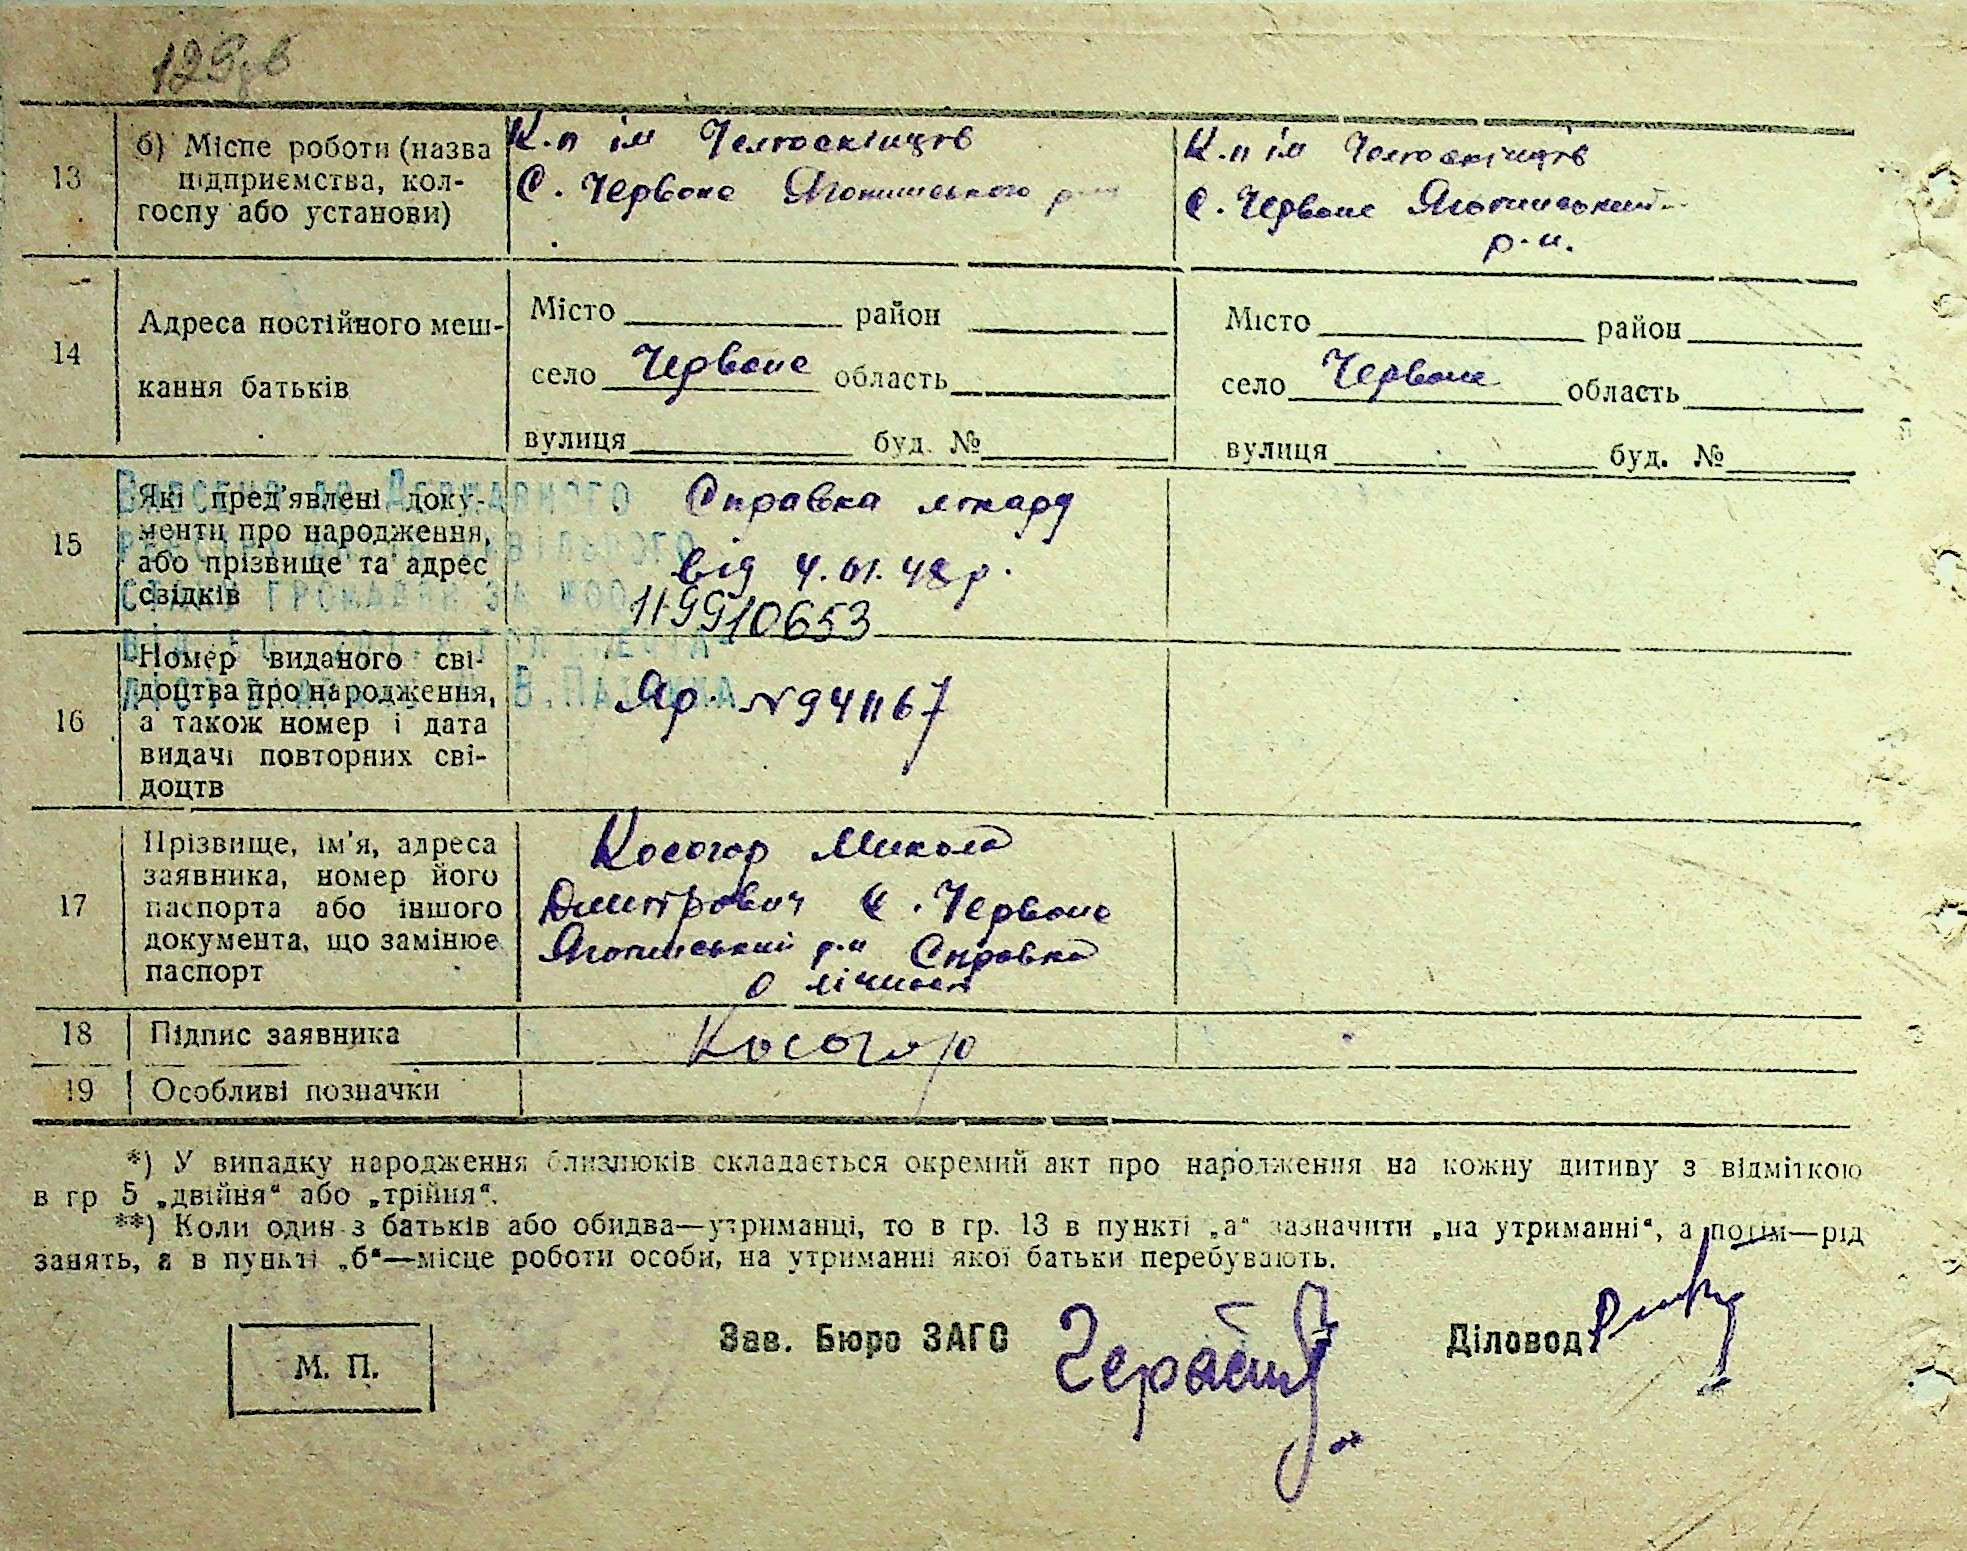 129зв
13
б) Місце роботи (назва підприємства, колгоспу або установи)
К.п ім Челюскінців
С. Червоне Яготинського р-ну
К.п ім Челюскінців
с. Червоне Яготинський
р-н.
14
Адреса постійного мешкання батьків
Місто район
село Червоне область
вулиця буд. №
Місто район
село Червоне область
вулиця буд. №
15
Які пред'явлені документи про народження, або прізвище та адрес свідків
Справка лікаря
від 4.01.48р.
119910653
Внесено до Державного
стану громадян за
16
Номер виданого свідоцтва про народження, а також номер і дата видачі повторних свідоцтв
Яр. №941167
17
Прізвище, ім'я, адреса заявника, номер його паспорта або іншого документа, що замінює паспорт
Косогор Микола
Дмитрович с. Червоне
Яготинський р-н Справка
о лічності
18
Підпис заявника
Косогор
19
Особливі позначки
*) У випадку народження близнюків складається окремий акт про народження на кожну дитину з відміткою
в гр 5 „двійня“ або „трійня“.
**) Коли один з батьків або обидва—утриманці, то в гр. 13 в пункті „а“ зазначити „на утриманні“, а потім—рід
занять, а в пункті „б“—місце роботи особи, на утриманні якої батьки перебувають.
М. П.
Зав. Бюро ЗАГС
Діловод